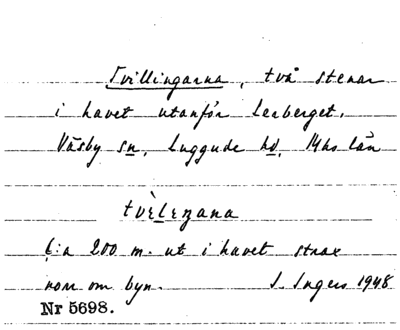 Tvillingarna, två stenar
i havet utanför Lerberget.
Väsby sn, Luggude hd, Mhs län
tvèleŋana
C:a 200 m. ut i havet strax
norr om byn. I. Ingers 1948
Nr 5698.